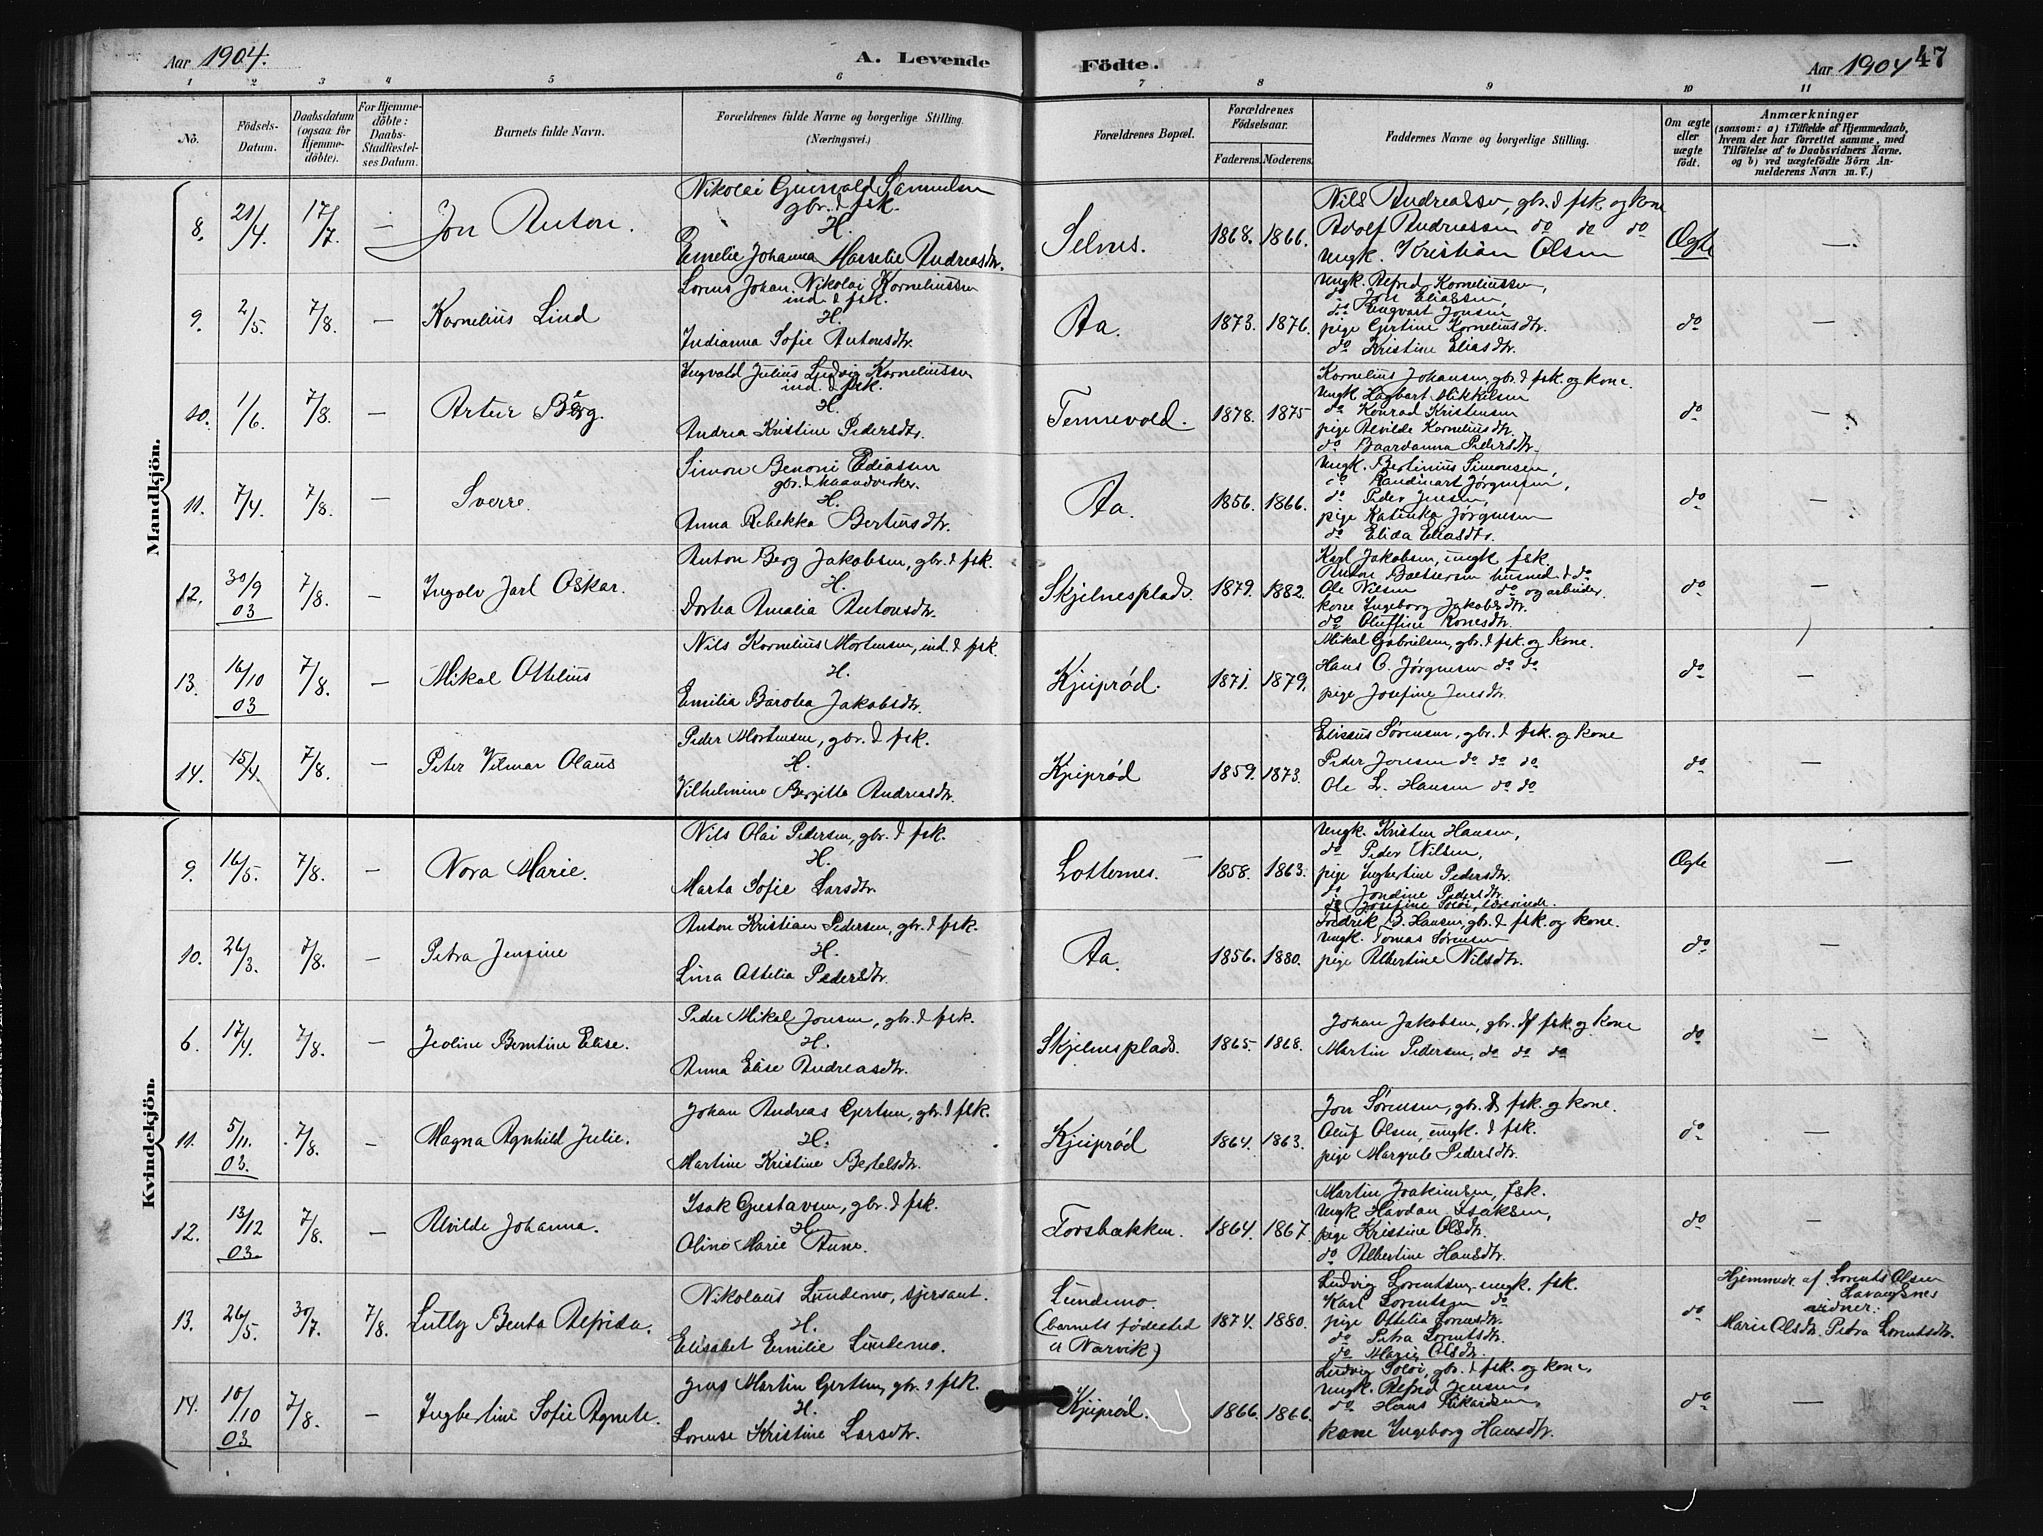 Aar 1904. A. Levende Födte. Aar 1904 47
1 2 3 4 5 6 7 8 9 10 11
No. Födsels-Datum. Daabsdatum (ogsaa for Hjemme-döbte). For Hjemme-döbte: Daabs-Stadfæstel-ses Datum. Barnets fulde Navn. Forældrenes fulde Navne og borgerlige Stilling. (Næringsvei.) Forældrenes Bopæl. Forældrenes Födselsaar. Faderens. Moderens. Faddernes Navne og borgerlige Stilling. Om ægte eller uægte födt. Anmærkninger (saasom: a) i Tilfælde af Hjemmedaab, hvem der har forrettet samme, med Tilföielse af to Daabsvidners Navne, og b) ved uægtefödte Börn An-melderens Navn m. V.)
Mandkjön.
8. 21/4. 17/7. — Jon Anton.
Nikolai Grinvald Samuelsen
gbr. & fsk.
H.
Emelie Johanna Marselie Andreasdtr.
Selnes. 1868. 1866.
Nils Andreassen, gbr. & fsk og kone
Adolf Andreassen do do do
Ungk. Kristian Olsen
Ægte —
9. 2/5. 7/8. — Kornelius Lind
Lorens Johan Nikolai Korneliussen
ind. & fsk.
H.
Indianna Sofie Antonsdtr.
Aa. 1873. 1876.
Ungk. Alfred Korneliussen,
do Jon Eliassen,
do Ingvart Jonsen
pige Gjertine Korneliusdtr.
do Kristine Eliasdtr.
do —
10. 1/6. 7/8. — Artur Berg.
Ingvald Julius Ludvig Korneliussen
ind. & fsk.
H.
Andrea Kristine Pedersdtr.
Tennevold. 1878. 1875
Kornelius Johansen, gbr. & fsk. og kone.
Ungk Hagbart Mikkelsen
do Konrad Kristensen
pige Alvilde Korneliusdtr.
do Baardanna Pedersdtr.
do —
11. 7/4. 7/8. — Sverre.
Simon Benoni Ediassen
gbr. & haandverker.
H.
Anna Rebekka Bertinsdtr.
Aa. 1856. 1866.
Ungk. Bertinius Simonsen,
do Randinart Jørgensen,
do Peder Jensen,
pige Katinka Jørgensen
do Elida Eliasdtr.
do —
12. 30/9 03 7/8. — Ingolv Jarl Oskar.
Anton Berg Jakobsen, gbr. & fsk.
H.
Dortea Amalia Antonsdtr.
Skjelnesplads. 1879. 1882.
Karl Jakobsen, ungk fsk.
Anton husmd. & do
Ole Nilsen do og arbeider,
kone Ingeborg Jakobsdtr.
do Oluffine Konesdtr.
do —
13. 16/10 03 7/8. — Mikal Ottelius
Nils Kornelius Mortensen, ind. & fsk.
H.
Emilia Barolea Jakobsdtr.
Kjeiprød. 1871. 1879.
Mikal Gabrielsen, gbr. & fsk. og kone.
Hans C. Jørgensen do do
pige Josefine Jensdtr.
do —
14. 15/4. 7/8. — Peter Vilmar Olaus
Peder Mortensen, gbr. & fsk.
H.
Vilhelmine Bergitte Andreasdtr.
Kjeiprød 1859. 1873.
Elisæus Sørensen, gbr. & fsk. og kone
Peder Jonsen do do do
Ole L. Hansen do do
do —
Kvindekjön.
9. 16/5. 7/8. — Nora Marie.
Nils Olai Pedersen, gbr. & fsk.
H.
Marta Sofie Larsdtr.
Lotternes. 1858. 1863.
Ungk. Kristen Hansen,
do Peder Nilsen,
pige Ingbertine Pedersdtr.
do Jondine Pedersdtr.
do Josefine Soløi, lærerinde.
Ægte —
10. 26/3. 7/8. — Petra Jensine
Anton Kristian Pedersen, gbr. & fsk.
H.
Lina Ottelia Pedersdtr.
Aa. 1856. 1880.
Fredrik B. Hansen, gbr. & fsk. og kone.
Ungk. Tomas Sørensen
pige Albertine Nilsdtr.
do —
6. 17/4. 7/8. — Jeoline Berntine Elise.
Peder Mikal Jonsen, gbr. & fsk.
H.
Anna Elise Andreasdtr.
Skjelnesplads. 1865. 1868.
Johan Jakobsen, gbr. & fsk. og kone
Martin Pedersen, do do do
do —
11. 5/11. 03. 7/8. — Magna Agnhild Julie.
Johan Andreas Gjertsen, gbr. & fsk.
H.
Martine Kristine Bertelsdtr.
Kjeiprød 1864. 1863.
Jon Sørensen, gbr. & fsk. og kone.
Oluf Olsen, ungk. & fsk.
pige Margrete Pedersdtr.
do —
12. 13/12 03. 7/8. — Alvilde Johanna.
Isak Gustavsen, gbr. & fsk.
H.
Oline Marie Aune.
Forsbakken. 1864. 1867.
Martin Joakimsen, fsk.
Ungk Havdan Isaksen,
pige Kristine Olsdtr.
do Albertine Hansdtr.
do —
13. 26/5. 30/7. 7/8. Lully Benta Alfrida.
Nikolaus Lundemo, sjersant.
H.
Elisabet Emilie Lundemo.
Lundemo.
(barnets fødested
er Narvik)
1874. 1880.
Ludvig Lorentsen ungk. fsk.
Karl Lorentsen do
pige Ottelia Lorentsdtr.
do Petra Lorentsdtr.
do Marie Olsdtr.
do
Hjemmedr. af Lorents Olsen
Lavangsnes
vidner:
Marie Olsdtr. Petra Lorentsdtr.
14. 10/10 03 7/8. — Ingbertine Sofie Agnete.
Jens Martin Gjertsen, gbr. & fsk.
H.
Lorense Kristine Larsdtr.
Kjeiprød. 1866. 1866.
Ludvig Soløi, gbr. & fsk. og kone,
Ungk. Alfred Jensen,
do Hans Rikardsen,
kone Ingeborg Hansdtr.
do —